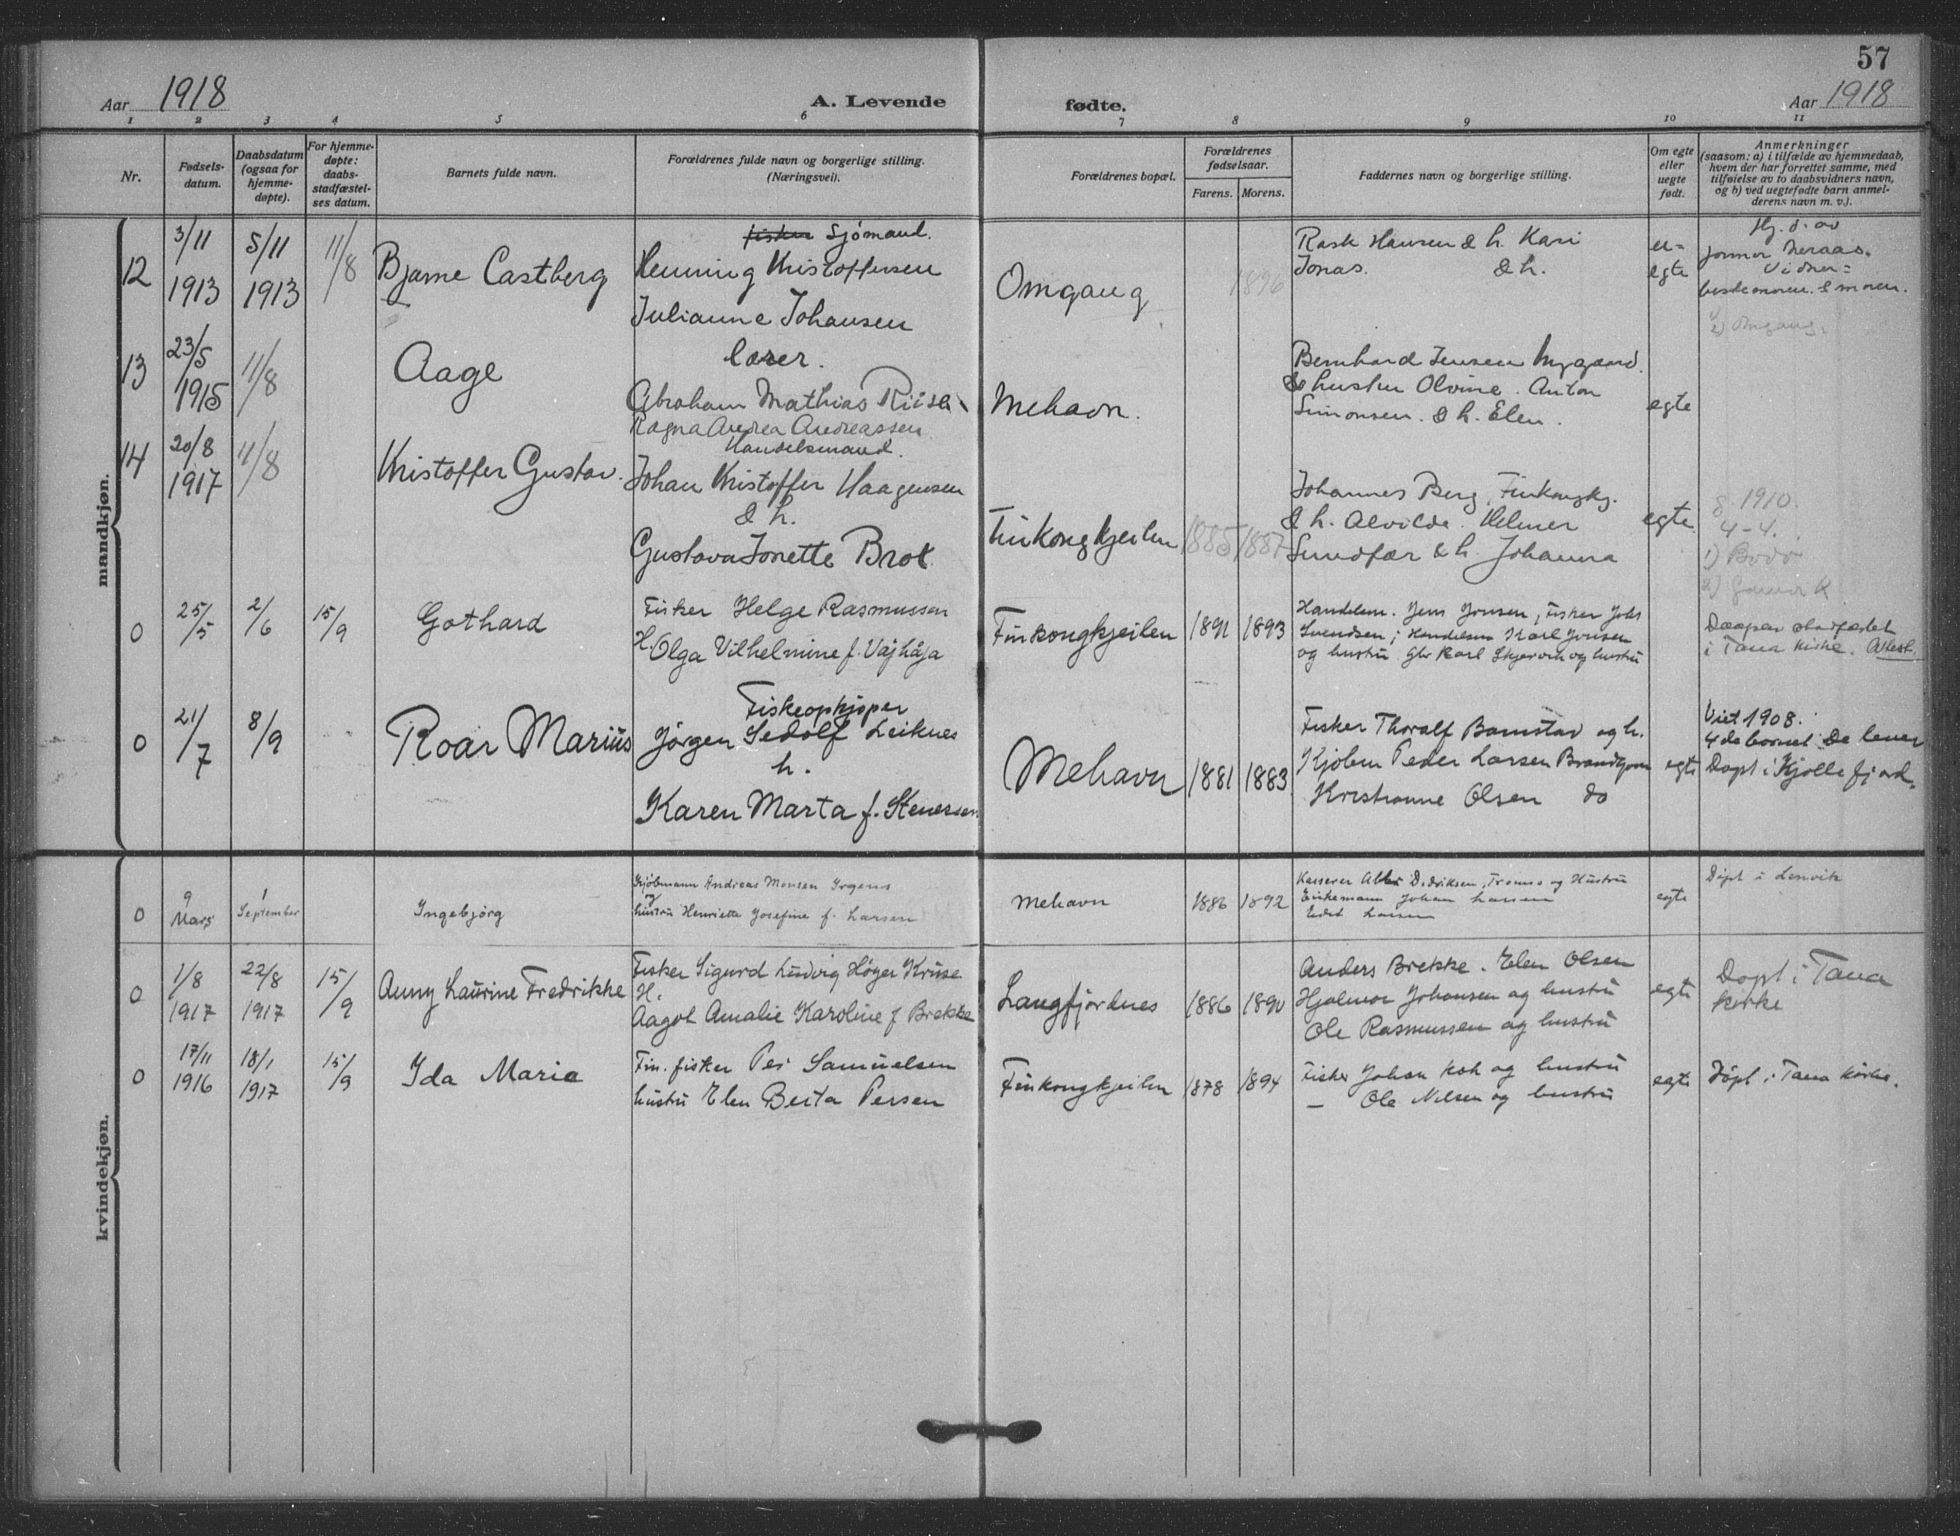 57
Aar 1918
A. Levende
fødte.
Aar 1918
1 2 3 4 5 6 7 8 9 10 11
Nr.
Fødsels-
datum.
Daabsdatum
(ogsaa for
hjemme-
døpte).
For hjemme-
døpte:
daabs-
stadfæstel-
ses datum.
Barnets fulde navn.
Forældrenes fulde navn og borgerlige stilling.
(Næringsvei).
Forældrenes bopæl.
Forældrenes
fødselsaar.
Farens. Morens.
Faddernes navn og borgerlige stilling.
Om egte
eller
uegte
født.
Anmerkninger
(saasom: a) i tilfælde av hjemmedaab,
hvem der har forrettet samme, med
tilføielse av to daabsvidners navn,
og b) ved uegtefødte barn anmel-
derens navn m. v.).
mandkjøn.
12
3/11
1913
5/11
1913
11/8
Bjarne Castberg
fisker Sjömand.
Henning Kristoffersen
Julianne Johansen
Omgang
1896
Rask Hansen & h. Kari
Jonas. & h.
u=
egte
Hj. d. av
Vidner=
bestemoren. & moren.
2) Omgang.
13
23/5
1915
11/8
Aage
lærer.
Abraham Mathias
Ragna Andrea Andreassen
Mehavn.
Bernhard Jensen Nygaard.
& hustru Olvine. Anton
Simonsen. & h. Elen.
egte
14
20/8
1917
11/8
Kristoffer Gustav.
Handelsmand.
Johan Kristoffer Haagensen
& h.
Gustava Jonette Brot
Finkongkjeilen
1885 1887
Johannes Berg, Finkongkj.
& h. Alvilde. Helmer
Sundfær & h. Johanna
egte
g 1910.
4-4.
1) Bodö
2) Gamvik
0
25/5
2/6
15/9
Gothard
Fisker Helge Rasmussen
H. Olga Vilhelmine f. Vajhåja
Finkongkjeilen
1891 1893
Handelsm. Jens Jensen; Fisker Johs
Svendsen; Handelsm Karl Jensen
og hustru Karl Skjervik og hustru
Daapen stadfæstet
i Tana Kirke. Attest
0
21/7
8/9
Roar Marius
Fiskeopkjøper
Jörgen Sedolf Leiknes
h.
Karen Marta f. Stenersen
Mehavn
1881 1883
Fisker Thoralf Barnstad og h.
Kjøbm Peder Larsen
Kristianne Olsen do
egte
Viet 1908.
4de barnet. De lever
Døpt i Kjöllefjord.
kvindekjøn.
0
9
Mars
1
September
Ingebjørg
Kjöbmann Andreas Monsen Irgens
og
hustru Henriette Josefine f. Larsen
Mehavn
1886 1892
Kasserer Didriksen, Tromsø og Hustru
Johan Larsen
Larsen
egte
Döpt i Lenvik
0
1/8
1917
22/8
1917
15/9
Anny Laurine Fredrikke
Fisker Sigurd Ludvig Höyer Kruse
H.
Aagot Amalie Karoline f Brekke
Langfjordnes
1886 1890
Anders Brekke. Elen Olsen
Hjalmar Johansen og hustru
Ole Rasmussen og hustru
egte
Døpt i Tana
kirke
0
17/11
1916
18/1
1917
15/9
Ida Maria
Fin. fisker Per Samuelsen
hustru Elen Berta Persen
Finkongkjeilen
1878 1894
Fisker Johan og hustru
— Ole Nilsen og hustru
egte
Döpt i Tana kirke.